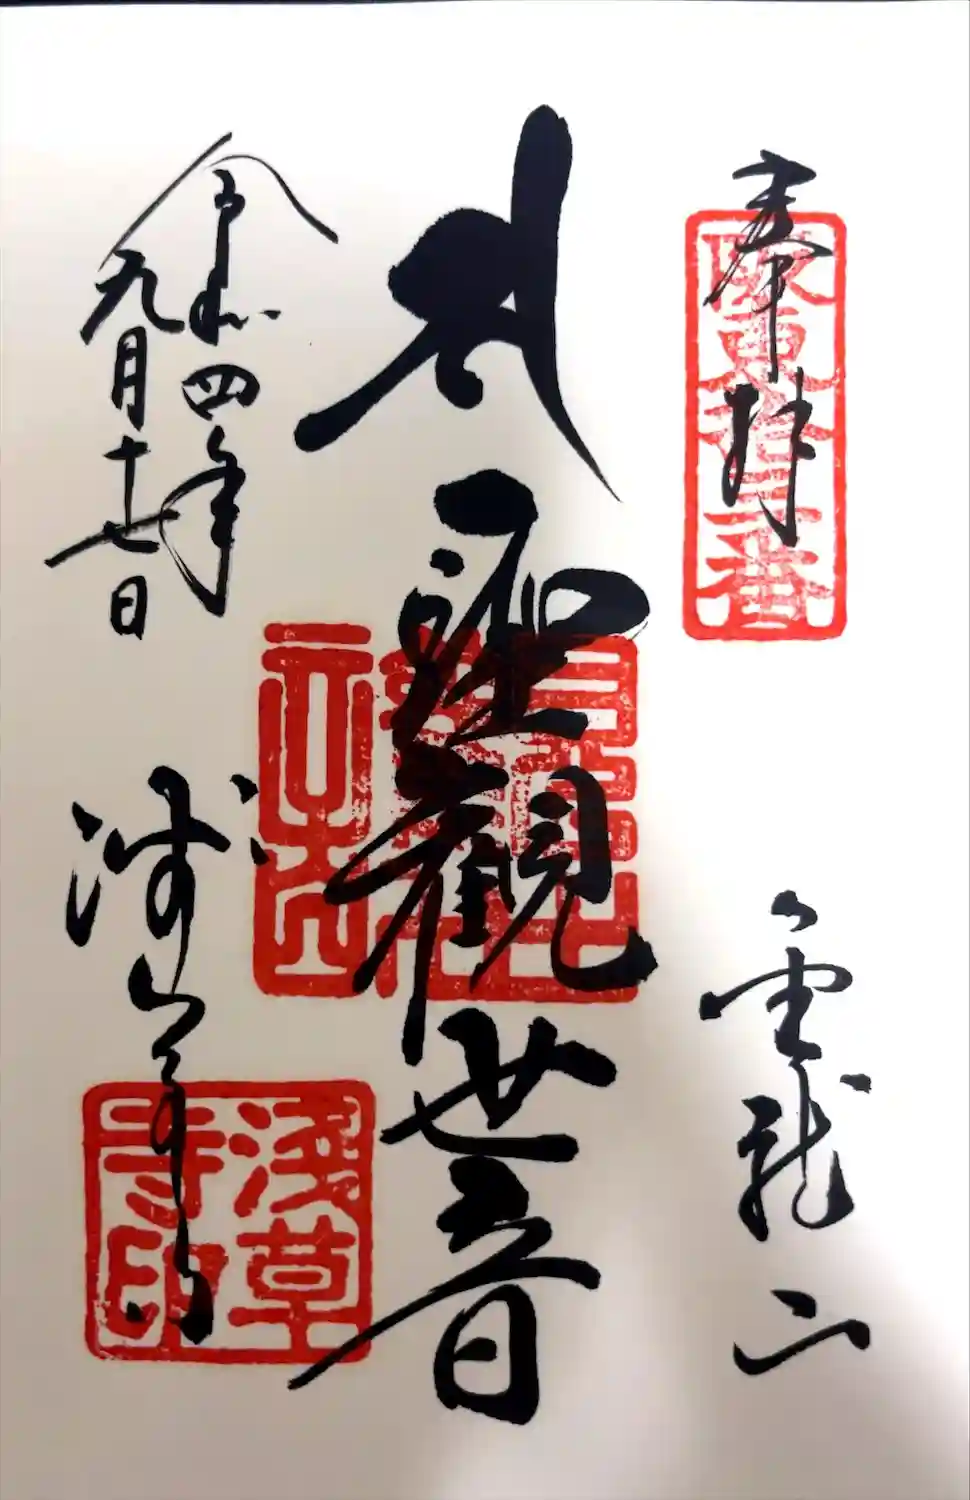 奉拝
阪東拾三番
金龍山
聖觀世音
令和四年
九月十七日
浅草寺
淺草
寺印